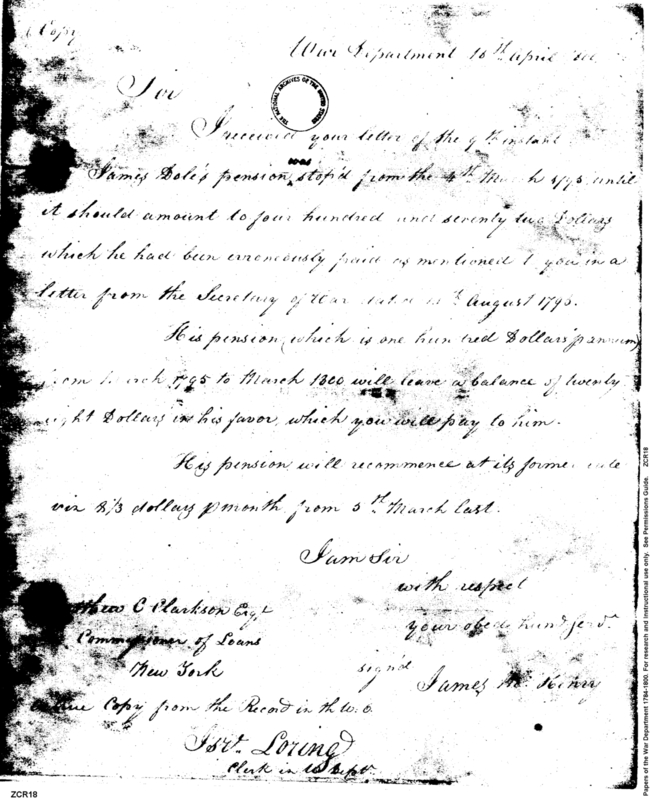 Copy
War Department 16th april
THE NATIONAL ARCHIVES OF THE UNITED STATES
Sir
I received your letter of the 9th instant
was
James Dole's pension ‸ stop'd from the 4th March 1795 until
it should amount to four hundred and seventy two Dollars
which he had been erroneously paid as mentioned to you in a
letter from the Secretary of War dated August 1795.
His pension (which is one hundred Dollars p annum)
from March 1795 to March 1800 will leave a balance of twenty
eight Dollars in his favor, which you will pay to him.
His pension will recommence at its former rate
viz 8 1/3 dollars p month from 5th March last.
I am Sir
with respect
your obed. hum. Serv.t
signd
James McHenry
Matthew C Clarkson Esqr
Commissioner of Loans
New York
a true Copy from the Record in the W. O
Loring
Clerk in W Dept.
ZCR18
Papers of the War Department 1784-1800. For research and instructional use only. See Permissions Guide. ZCR18